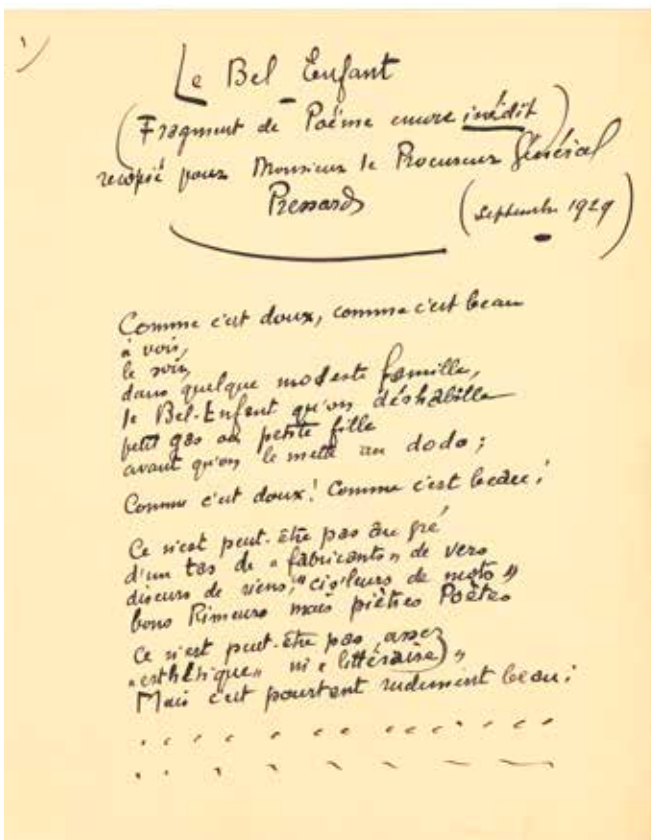 1)
Le Bel Enfant
(Fragment de Poëme encore inédit)
recopié pour Monsieur le Procureur Général
Pressard
(septembre 1929)
Comme c'est doux, comme c'est beau
à voir,
le soir,
dans quelque modeste famille,
le Bel-Enfant qu'on déshabille
petit gas ou petite fille
avant qu'on le mette au dodo ;
Comme c'est doux! Comme c'est beau!
Ce n'est peut-être pas au gré
d'un tas de « fabricants » de vers
diseurs de riens, "cis'leurs de mots"
bons Rimeurs mais piètres Poètes
Ce n'est peut-être pas assez
« esthétique » ni « littéraire »
Mais c'est pourtant rudement beau!